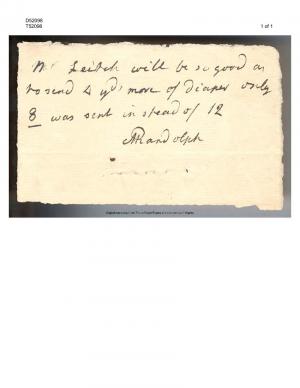 D52098
T52098
1 of 1
Mr Leitch will be so good as
to send 4 yds more of diaper only
8 was sent in stead of 12
MRandolph